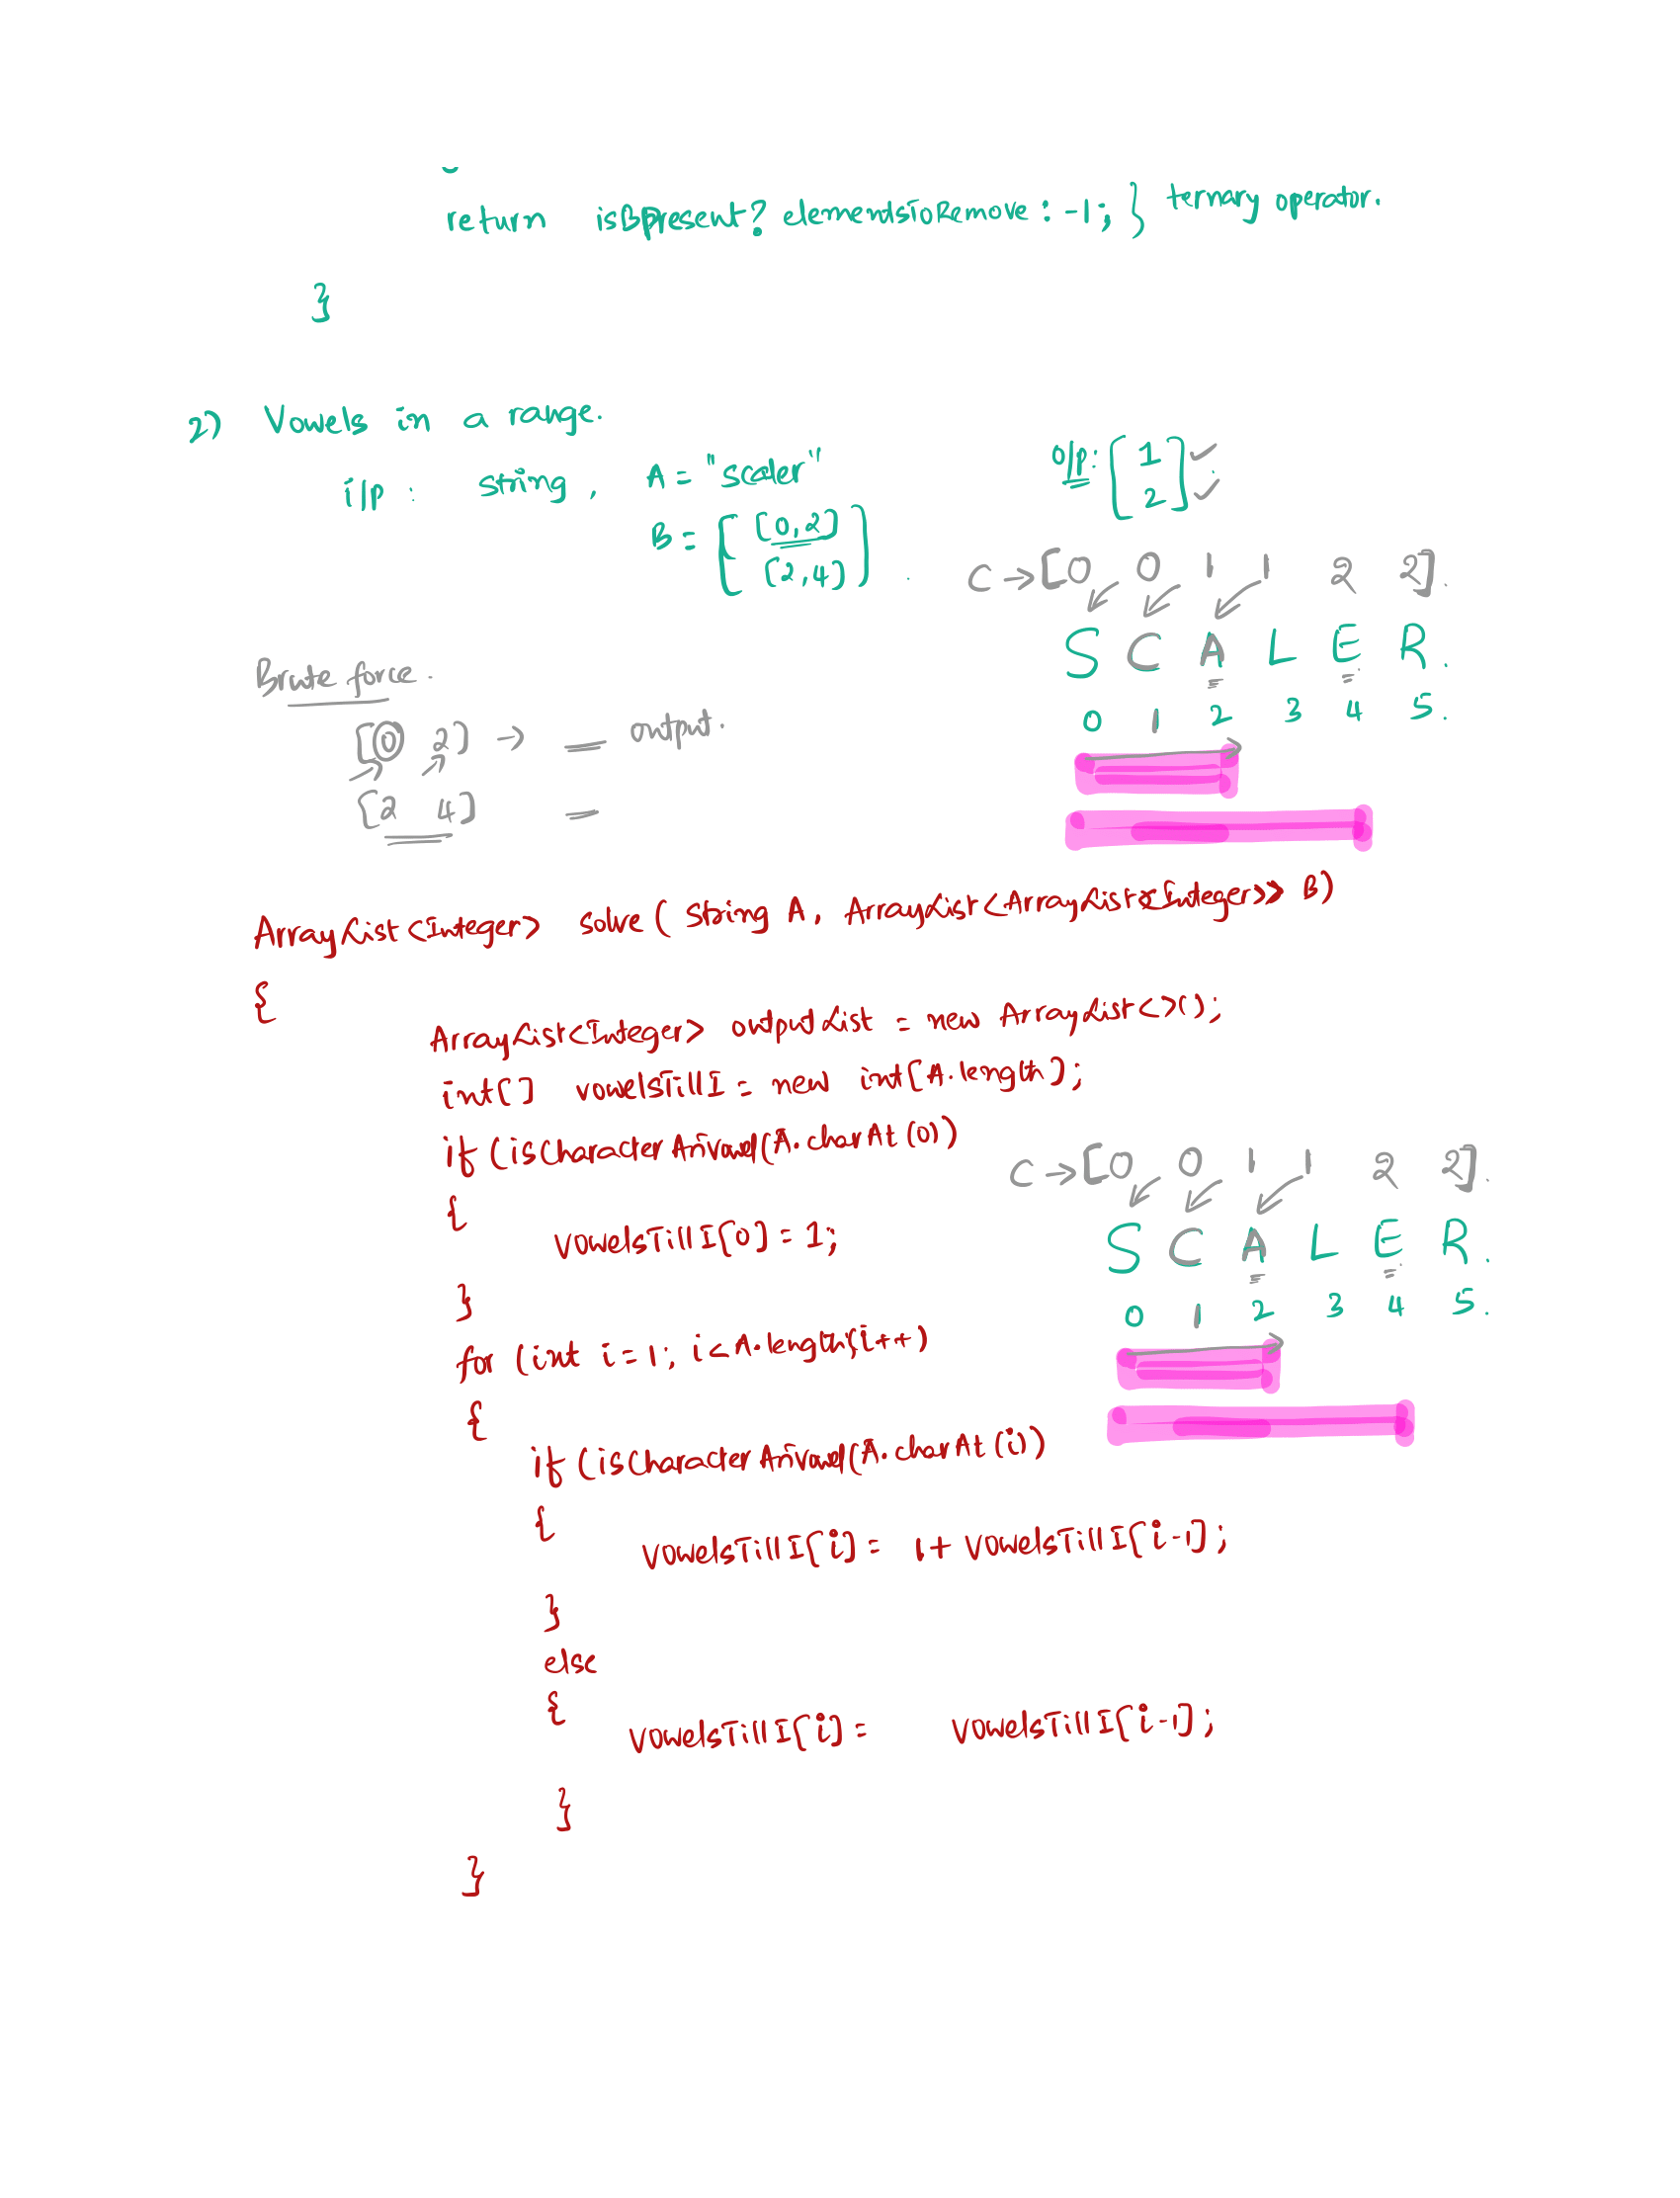 return isBPresent? elementsToRemove : -1; } ternary operator.
}
2) Vowels in a range.
i/p : string, A = "scaler"
B = [ [0,2]
[2,4] ] .
o/p: [ 1
2 ] .
C → [0 0 1 1 2 2].
S C A L E R .
0 1 2 3 4 5 .
Brute force .
[0 2] → output.
[2 4]
ArrayList<Integer> solve ( string A, ArrayList<ArrayList<Integer>> B)
{
ArrayList<Integer> outputList = new ArrayList<>();
int[] vowelsTillI = new int[A.length];
if (isCharacterAnVowel(A.charAt(0))
{
vowelsTillI[0] = 1;
}
for (int i = 1; i < A.length; i++)
{
if (isCharacterAnVowel(A.charAt(i))
{
vowelsTillI[i] = 1 + vowelsTillI[i-1];
}
else
{
vowelsTillI[i] = vowelsTillI[i-1];
}
}
C → [0 0 1 1 2 2].
S C A L E R .
0 1 2 3 4 5 .